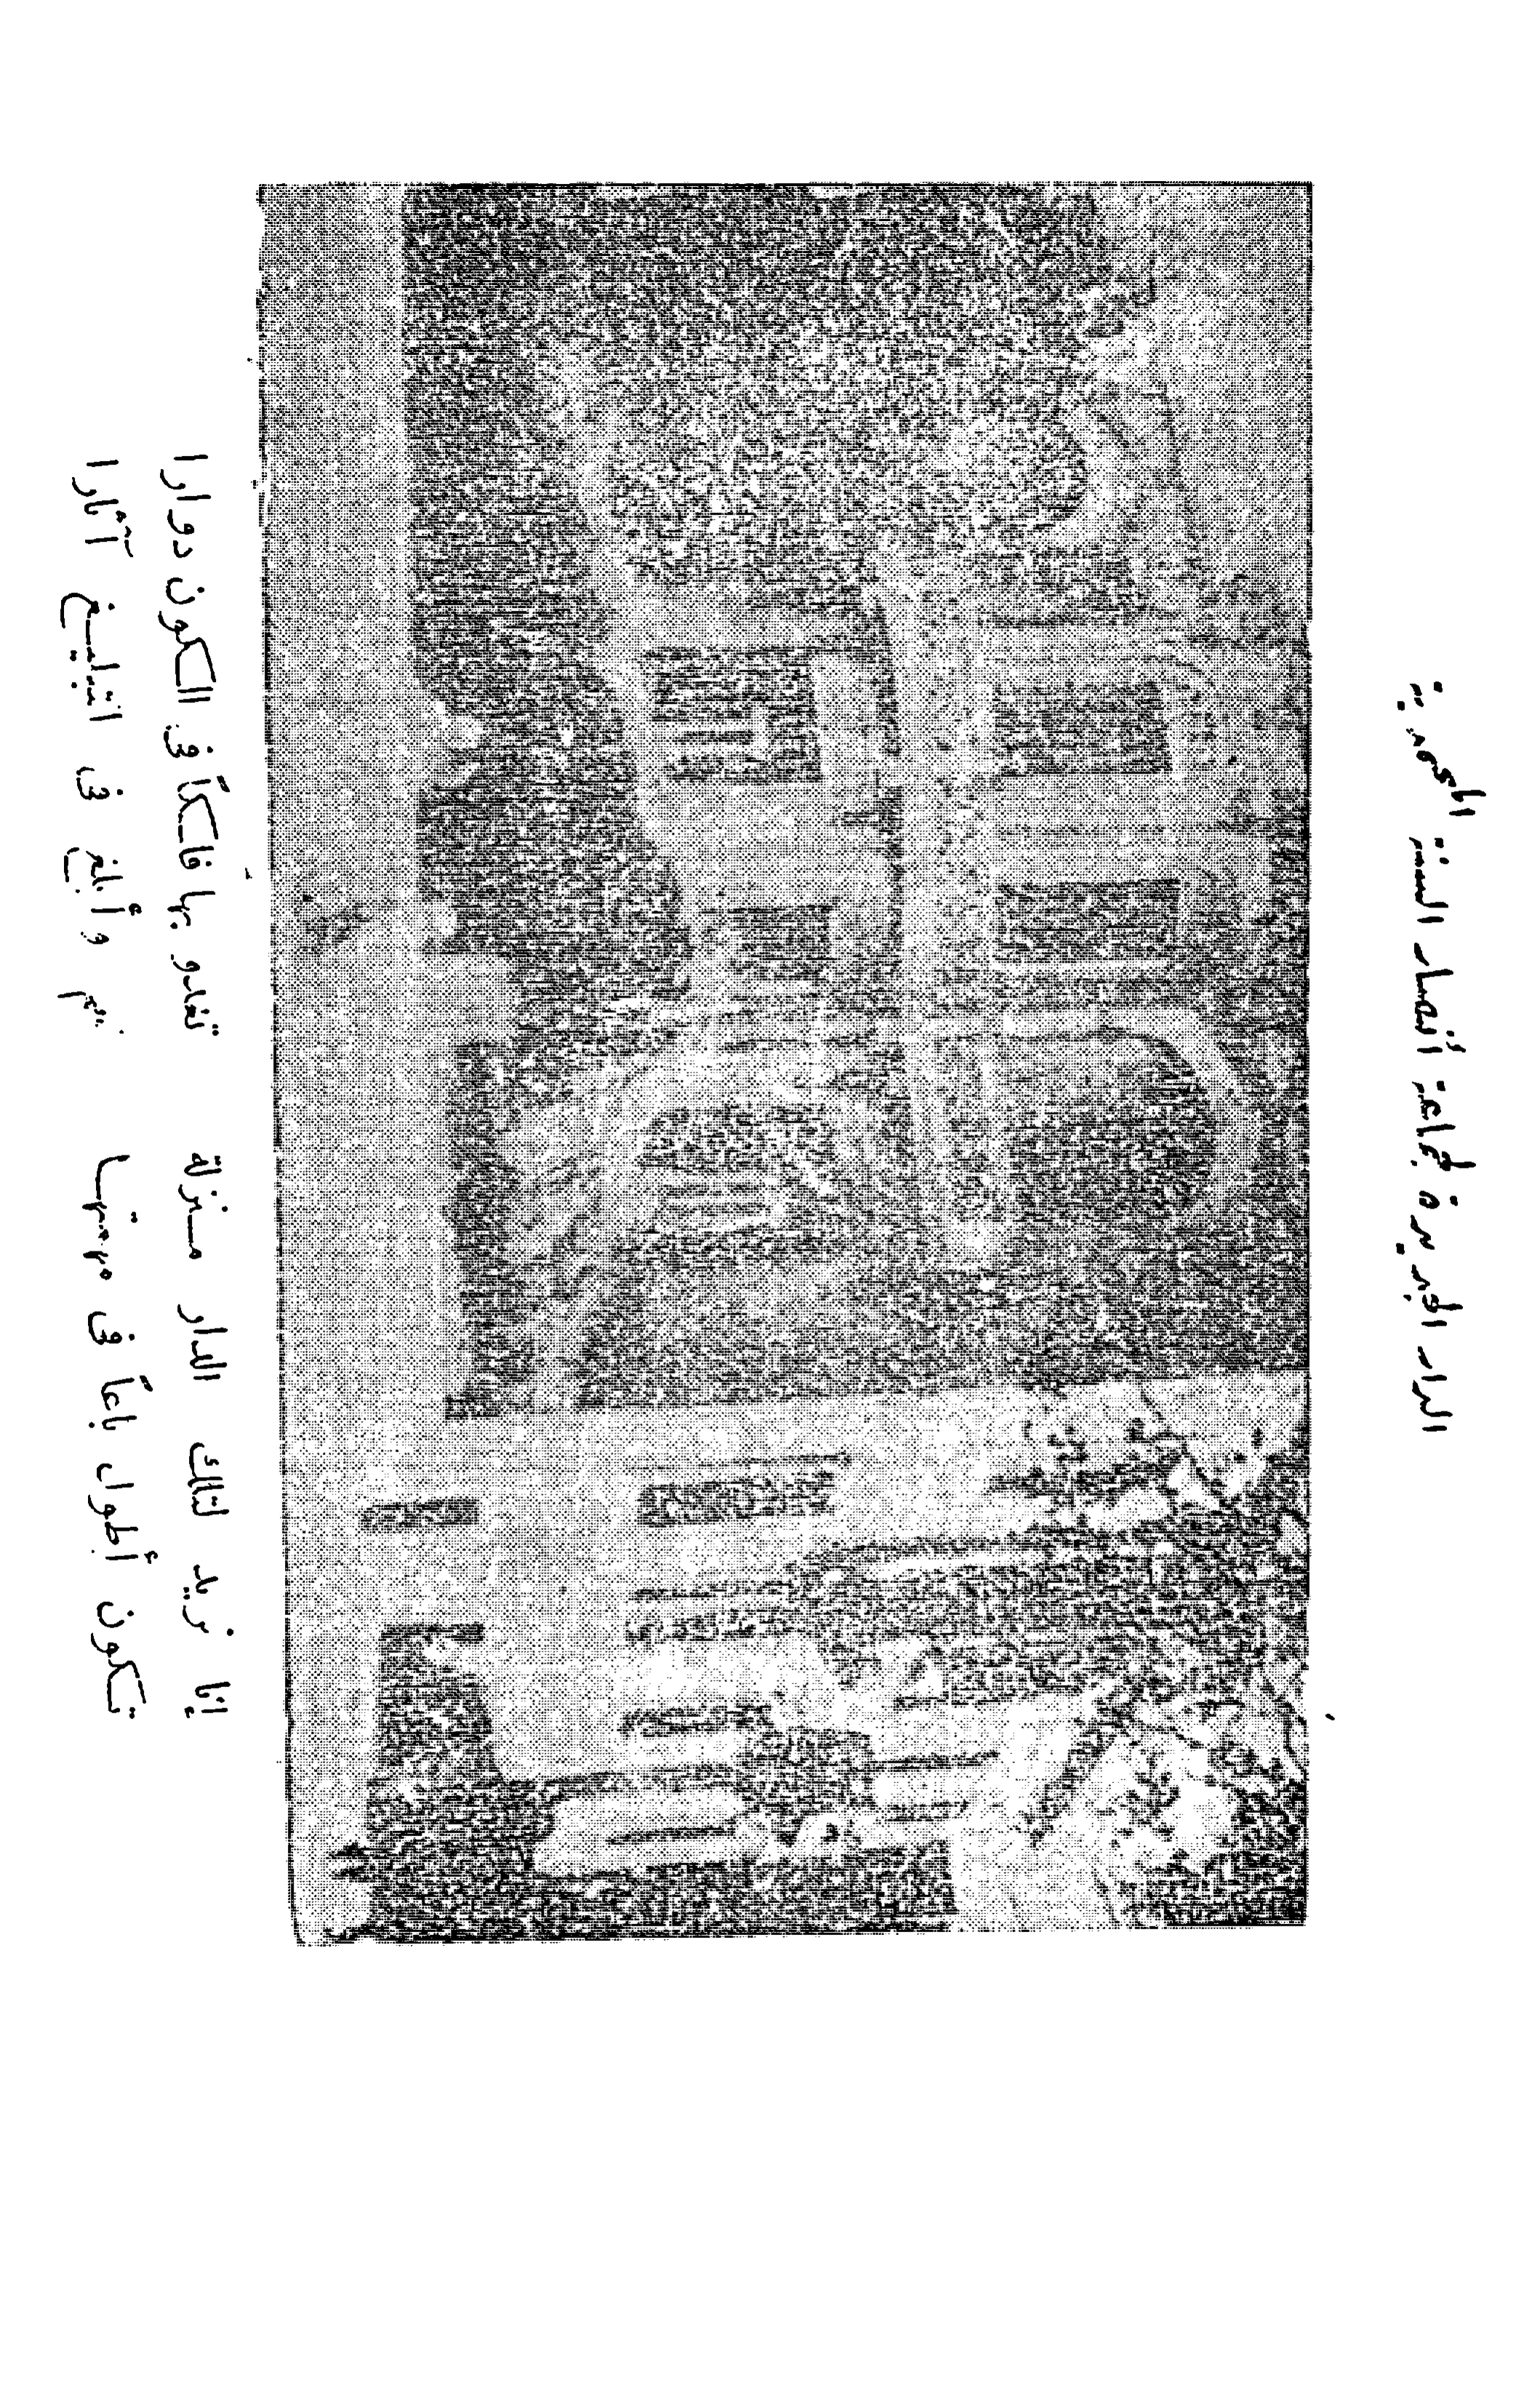 الدار الجديدة لجماعة أنصار السنة المحمدية
إنا نريد لتلك الدار منزلة تغدو بها فلكاً في الكون دوارا
تكون أطول باعاً في مهمتها وأبلغ في التبليغ آثارا